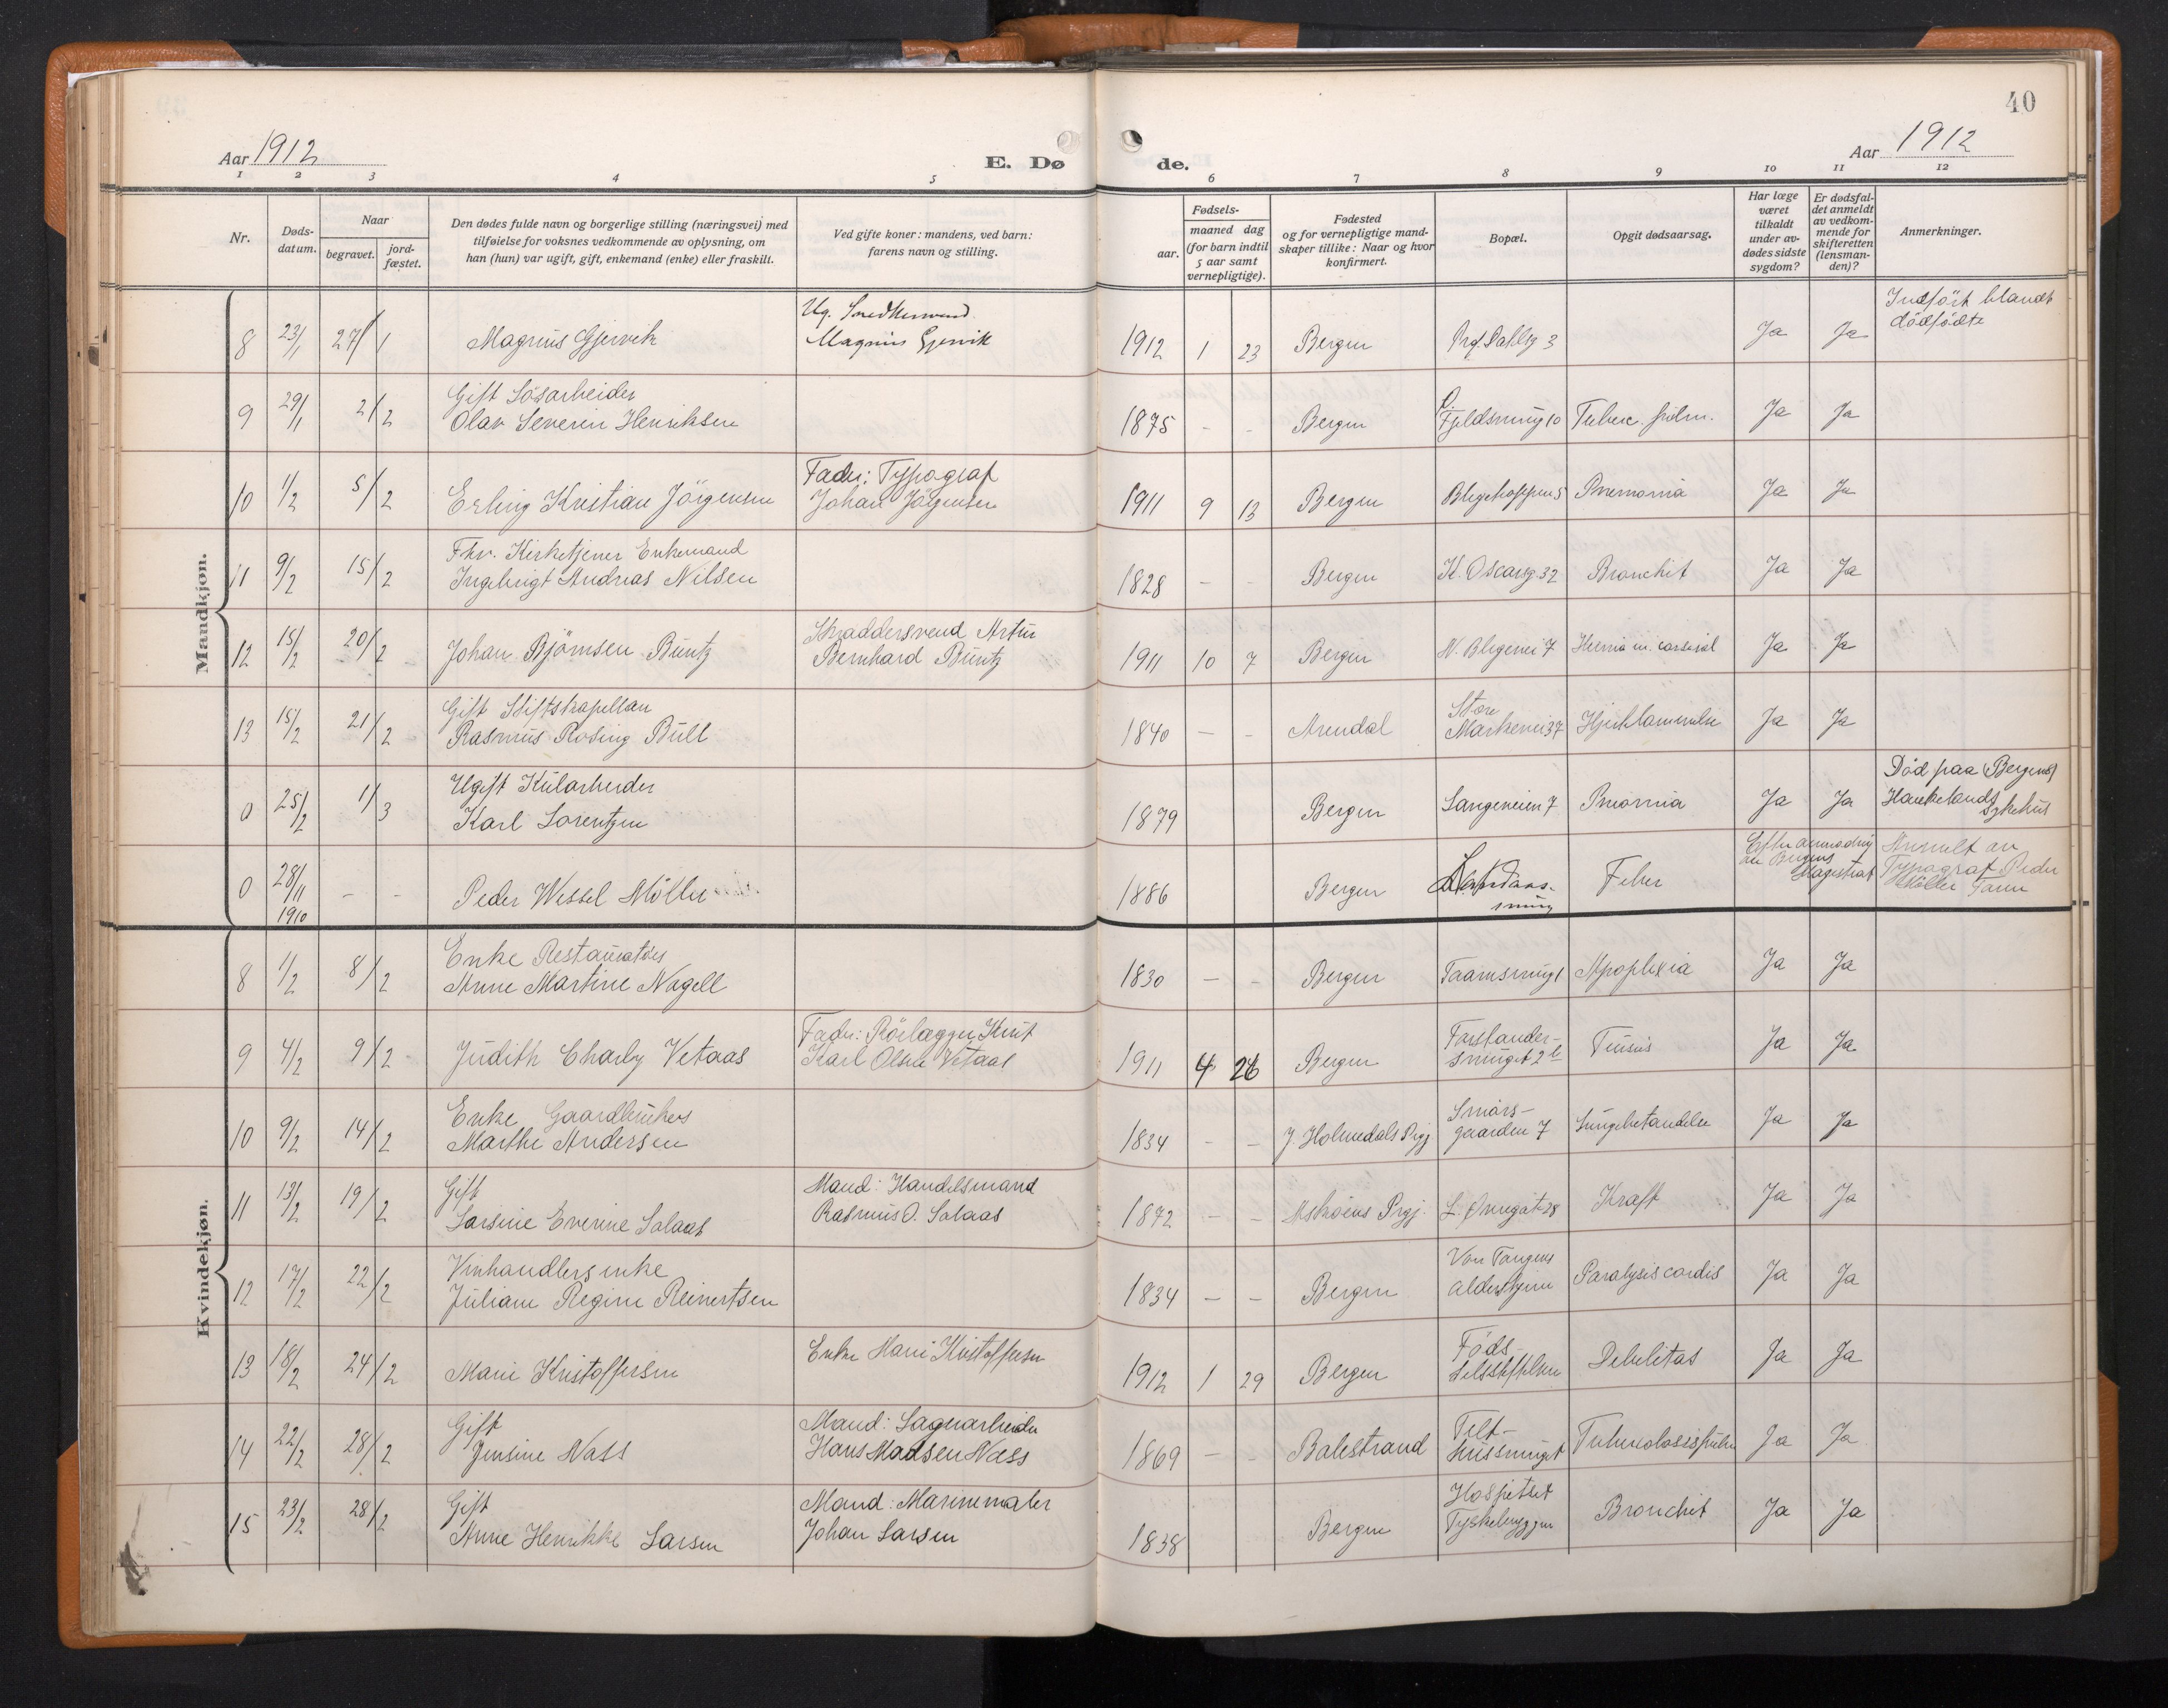 40
Aar 1912
E. Dø
de.
Aar 1912
1 2 3 4 5 6 7 8 9 10 11 12
Nr.
Døds-
datum.
Naar
begravet.
jord-
fæstet.
Den dødes fulde navn og borgerlige stilling (næringsvei) med
tilføielse for voksnes vedkommende av oplysning, om
han (hun) var ugift, gift, enkemand (enke) eller fraskilt.
Ved gifte koner: mandens, ved barn:
farens navn og stilling.
Fødsels-
aar.
maaned dag
(for barn indtil
5 aar samt
vernepligtige).
Fødested
og for vernepligtige mand-
skaper tillike: Naar og hvor
konfirmert.
Bopæl.
Opgit dødsaarsag.
Har læge
været
tilkaldt
under av-
dødes sidste
sygdom?
Er dødsfal-
det anmeldt
av vedkom-
mende for
skifteretten
(lensman-
den)?
Anmerkninger.
Mandkjøn.
8 23/1 27/1 Magnus Gjervik
Ug. Snedkersvend
Magnus Gjervik
1912 1 23 Bergen 3 Ja Ja
Indført blandt
dödfödte
9 29/1 2/2
Gift Lösarbeider
Olav Severin Henriksen
1875 - - Bergen Fjeldsmug 10 Tuberc. pulm. Ja Ja
10 1/2 5/2 Erling Kristian Jörgensen
Fader: Typograf
Johan Jörgensen
1911 9 13 Bergen Blegehoppen 5 Pnemonia Ja Ja
11 9/2 15/2
Fhv. Kirketjener Enkemand
Ingebrigt Andreas Nilsen
1828 - - Bergen K. Oscarsg. 32 Bronchit Ja Ja
12 15/2 20/2 Johan Björnsen Buntz
Skraddersvend Artur
Bernhard Buntz
1911 10 7 Bergen N. Blegevei 7 Hernia Ja Ja
13 15/2 21/2
Gift Stiftskapellan
Rasmus Rosing Bull
1840 - - Arendal
Store
Markevei 37 Hjertelammelse Ja Ja
0 25/2 1/3
Ugift Kularbeider
Karl Lorentzen
1879 Bergen Langeveien 7 Pnomia Ja Ja
Död paa (Bergens)
Haukelands
sykehus
0 28/11 1910 - - Peder Wessel Möller
1886 Bergen
smug
Feber
Efter anmodning
av Bergens
Magistrat
Anmelt av
Typograf Peder
Möller
Kvindekjøn.
8 1/2 8/2
Enke Restauratörs
Anne Martine Nagell
1830 - - Bergen Taarnsmug 1 Apoplexia Ja Ja
9 4/2 9/2 Judith Charly Vetaas
Fader: Rörlægger Knut
Karl Olsen Vetaas
1911 4 26 Bergen
Forstander-
smuget 2 b Tussis Ja Ja
10 9/2 14/2
Enke Gaardbrukers
Marthe Andersen
1834 - - J. Holmedals Prgj
Smörs-
gaarden 7 Lungebetændelse Ja Ja
11 13/2 19/2
Gift
Larsine Everine Solaas
Mand: Handelsmand
Rasmus O. Solaas
1872 - - Askøens Prgj. L. Øvregate 28 Kræft Ja Ja
12 17/2 22/2
Vinhandlers enke
Juliane Regine Reinertsen
1834 - - Bergen
Von Tangens
alderhjem Paralysis cordis Ja Ja
13 18/2 24/2 Marie Kristoffersen
Enke Marie Kristoffersen
1912 1 29 Bergen
Föds-
selsstiftelsen Debilitas Ja Ja
14 22/2 28/2
Gift
Jensine Næss
Mand: Sagnarbeider
Hans Madsen Næss
1869 - - Balestrand
Telt-
hussmuget Tuberculosis pulm Ja Ja
15 23/2 28/2
Gift
Anne Henrikke Larsen
Mand: Marinemaler
Johan Larsen
1838 Bergen
Hospitset
Tyskebryggen Bronchit Ja Ja